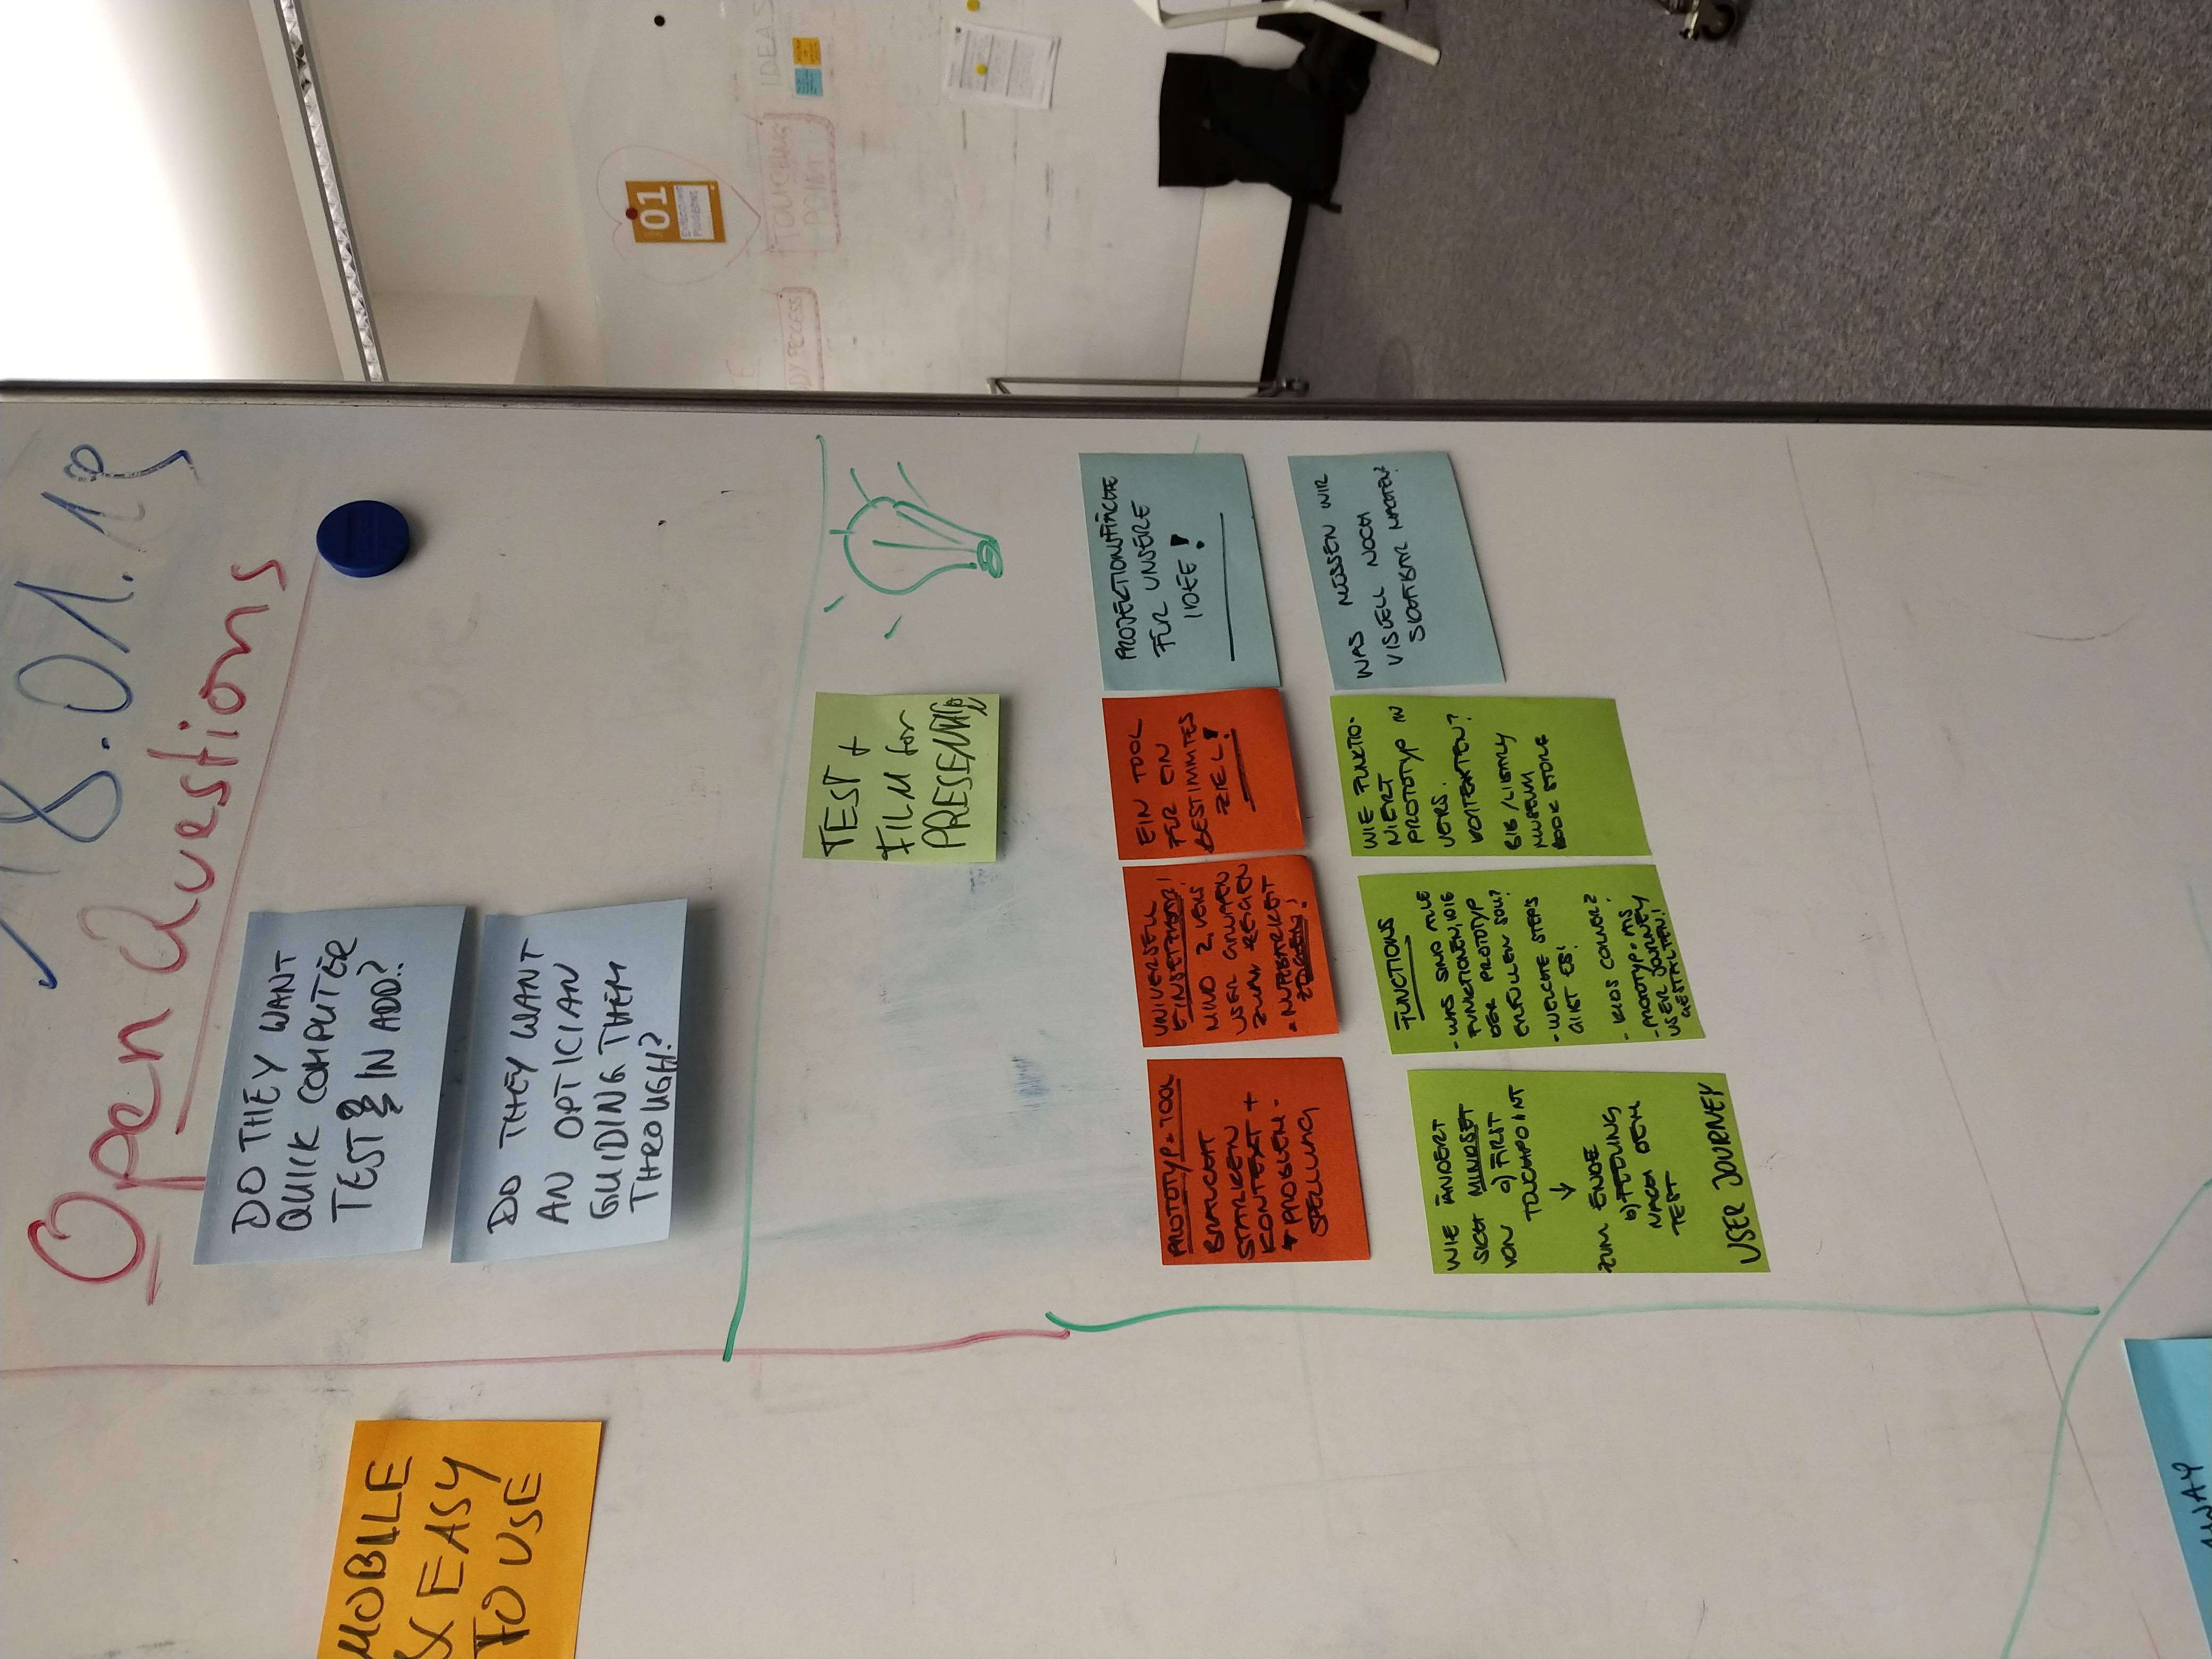 18.01.19
Open Questions
DO THEY WANT
QUICK COMPUTER
TEST IN ADD.?
DO THEY WANT
AN OPTICIAN
GUIDING THEM
THROUGH?
MOBILE
& EASY
TO USE
TEST +
FILM for
PRESENTATION
PROTOTYP = TOOL
BRAUCHT
STARKEN
KONTEXT +
PROBLEM-
SPELLUNG
UNIVERSELL
EINSETZBAR!
MIND 2 VERS
USER GRUPPEN
ZUM ZEIGEN
= NUTZBARKEIT
ZEIGEN!
EIN TOOL
FÜR EIN
BESTIMMTES
ZIEL!
PROJEKTIONSFLÄCHE
FÜR UNSERE
IDEE!
WIE ÄNDERT
SICH MINDSET
VON a) FIRST
TOUCHPOINT
↓
ZUM ENDE
b) FEELING
NACH DEM
TEST
USER JOURNEY
FUNCTIONS
- WAS SIND ALLE
FUNKTIONEN, DIE
DER PROTOTYP
ERFÜLLEN SOLL?
- WELCHE STEP'S
GIBT ES!
- KIDS CORNER?
- PROTOTYP = ALS
USER JOURNEY
GESTALTEN!
WIE FUNKTIO-
NIERT
PROTOTYP IN
VERS.
KONTEXTEN?
BIB / LIBRARY
MUSEUM
BOOK STORE
WAS MÜSSEN WIR
VISUELL NOCH
SICHTBAR MACHEN?
AWAY
01
TOUCHING
POINT
IDEAS
PROCESS